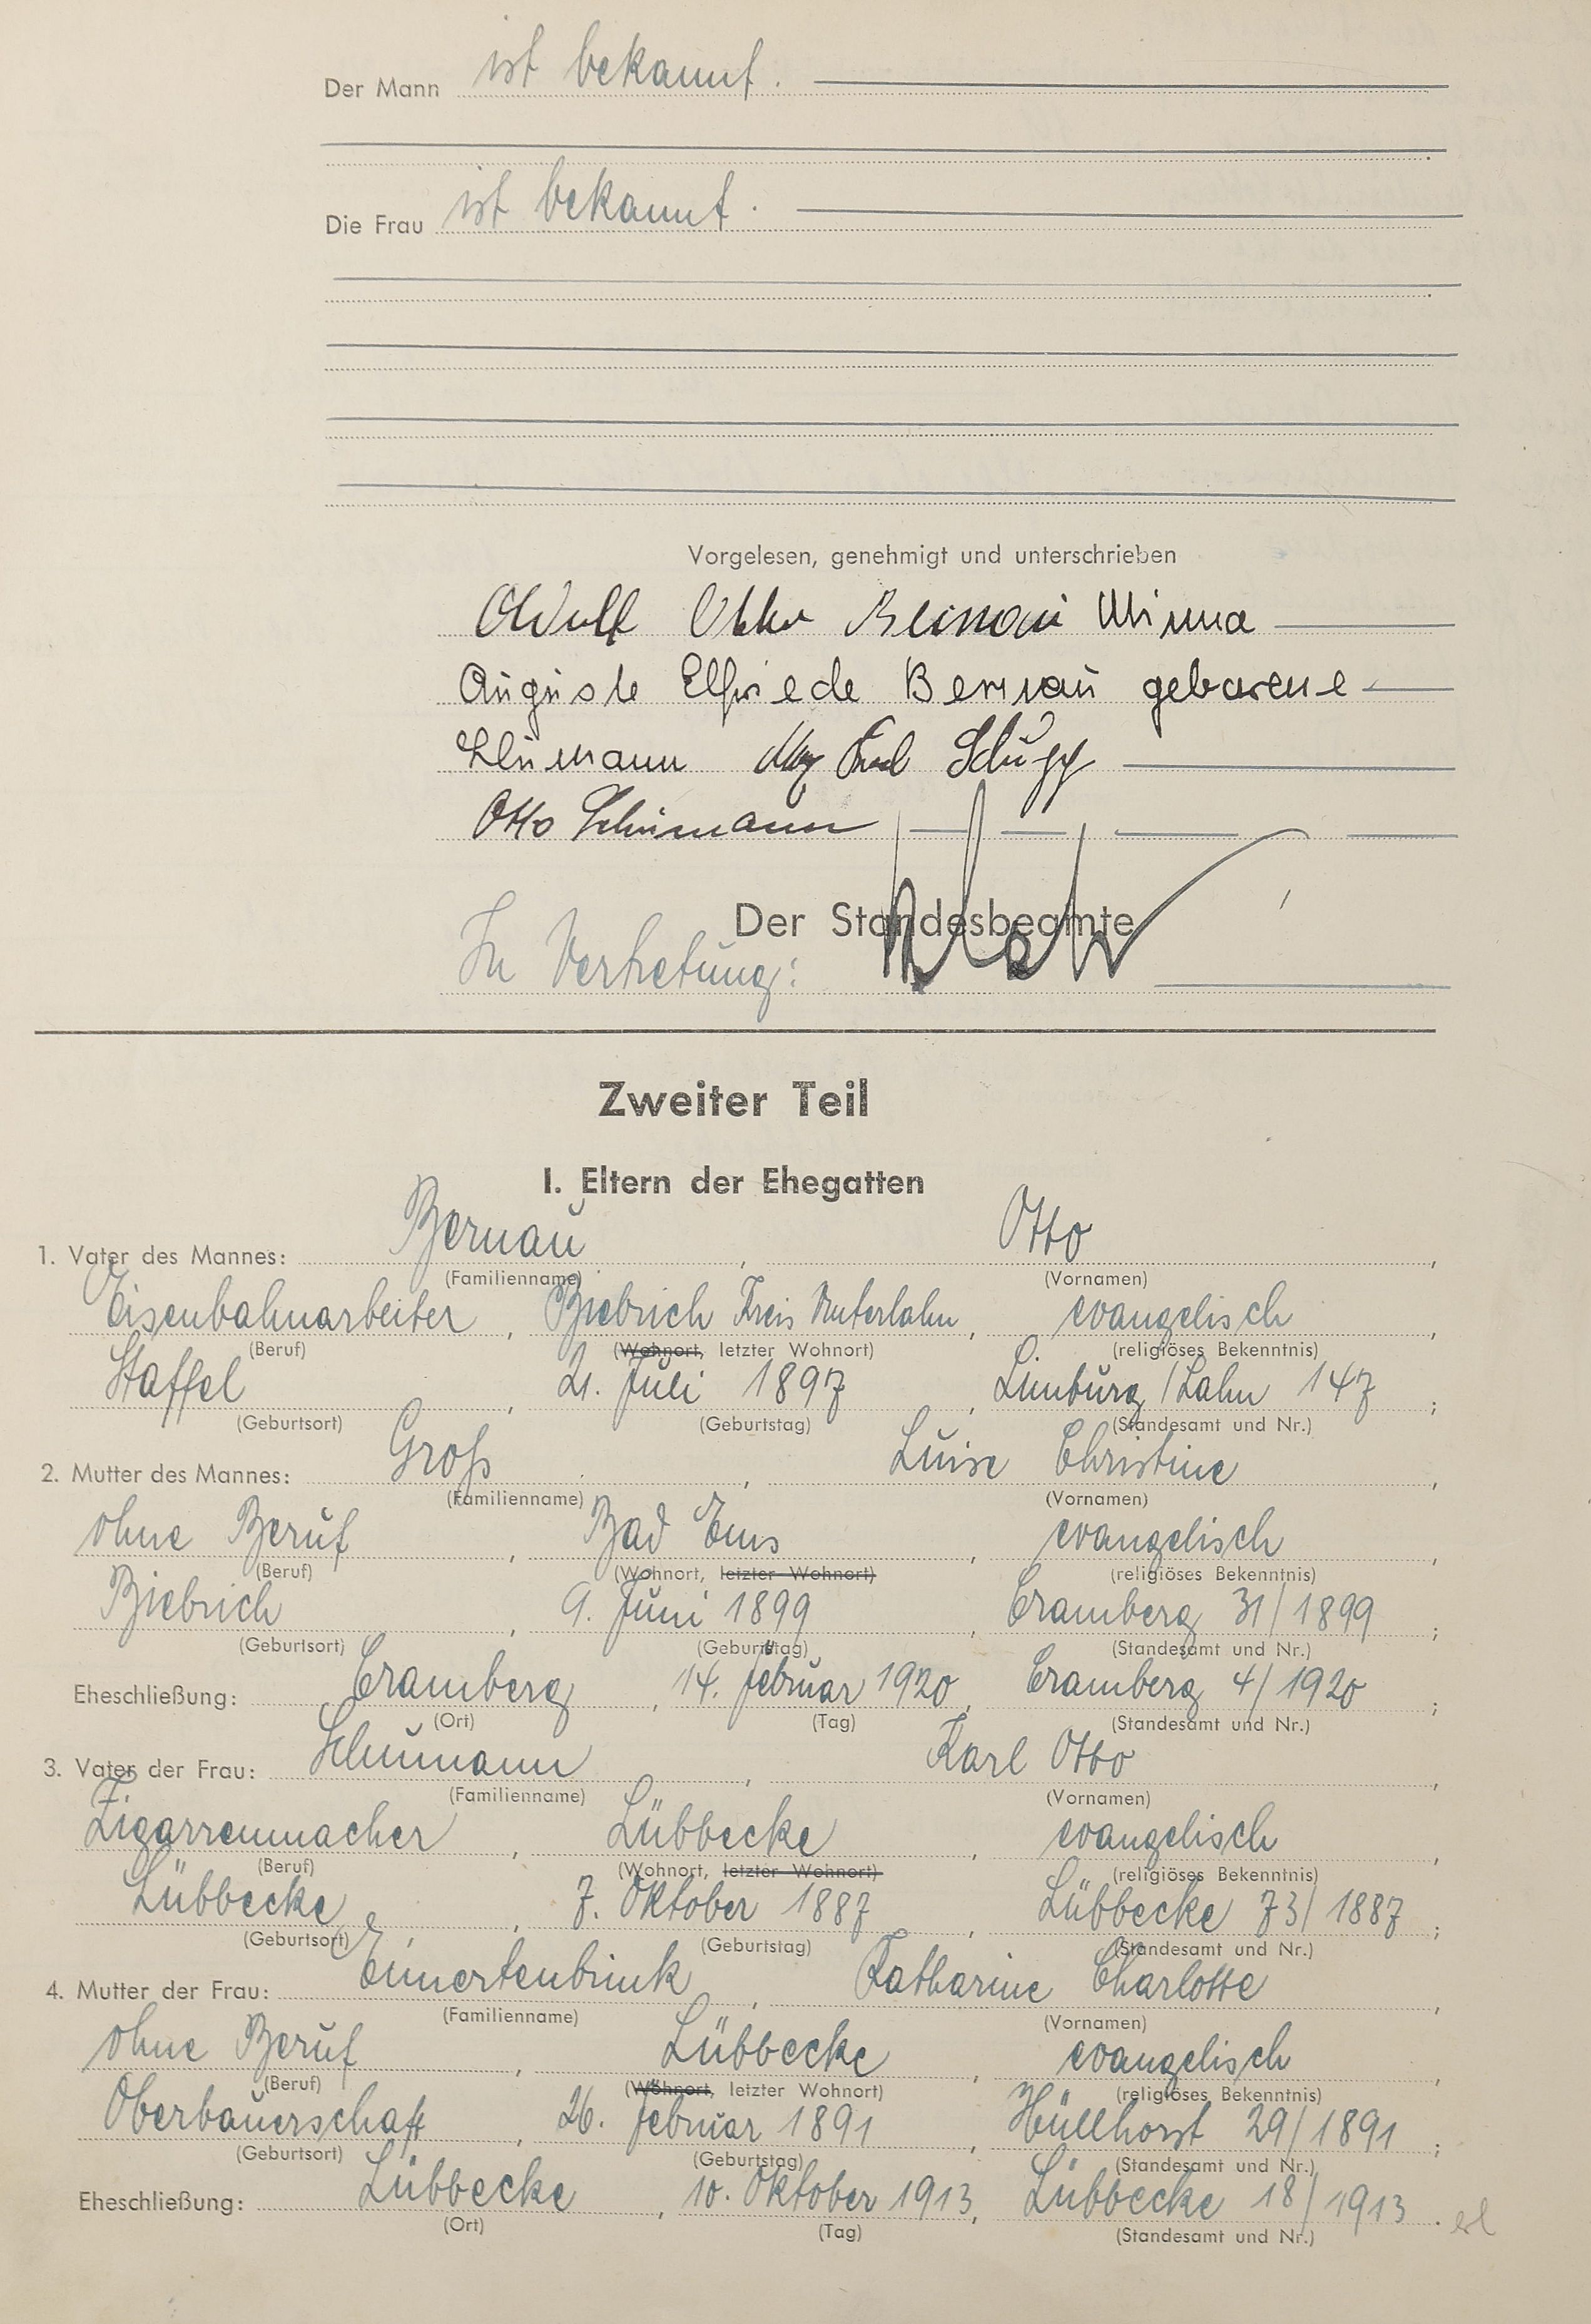 Der Mann ist bekannt.
Die Frau ist bekannt.
Vorgelesen, genehmigt und unterschrieben
Otto Bernau Minna
Auguste Elfriede Bernau geborene
Schumann
Otto Schumann
Der Standesbeamte
In Vertretung:
Zweiter Teil
I. Eltern der Ehegatten
1. Vater des Mannes: Bernau, Otto,
(Familienname) (Vornamen)
Eisenbahnarbeiter, Biebrich Kreis Unterlahn, evangelisch,
(Beruf) (Wohnort, letzter Wohnort) (religiöses Bekenntnis)
Staffel, 21. Juli 1897, Limburg/Lahn 147;
(Geburtsort) (Geburtstag) (Standesamt und Nr.)
2. Mutter des Mannes: Groß, Luise Christine,
(Familienname) (Vornamen)
ohne Beruf, Bad Ems, evangelisch,
(Beruf) (Wohnort, letzter Wohnort) (religiöses Bekenntnis)
Biebrich, 9. Juni 1899, Cramberg 31/1899;
(Geburtsort) (Geburtstag) (Standesamt und Nr.)
Eheschließung: Cramberg, 14. Februar 1920, Cramberg 4/1920;
(Ort) (Tag) (Standesamt und Nr.)
3. Vater der Frau: Schumann, Karl Otto,
(Familienname) (Vornamen)
Zigarrenmacher, Lübbecke, evangelisch,
(Beruf) (Wohnort, letzter Wohnort) (religiöses Bekenntnis)
Lübbecke, 7. Oktober 1887, Lübbecke 73/1887;
(Geburtsort) (Geburtstag) (Standesamt und Nr.)
4. Mutter der Frau: Ennertenbrink, Katharine Charlotte,
(Familienname) (Vornamen)
ohne Beruf, Lübbecke, evangelisch,
(Beruf) (Wohnort, letzter Wohnort) (religiöses Bekenntnis)
Oberbauerschaft, 26. Februar 1891, Hüllhorst 29/1891;
(Geburtsort) (Geburtstag) (Standesamt und Nr.)
Eheschließung: Lübbecke, 10. Oktober 1913, Lübbecke 18/1913.
(Ort) (Tag) (Standesamt und Nr.)